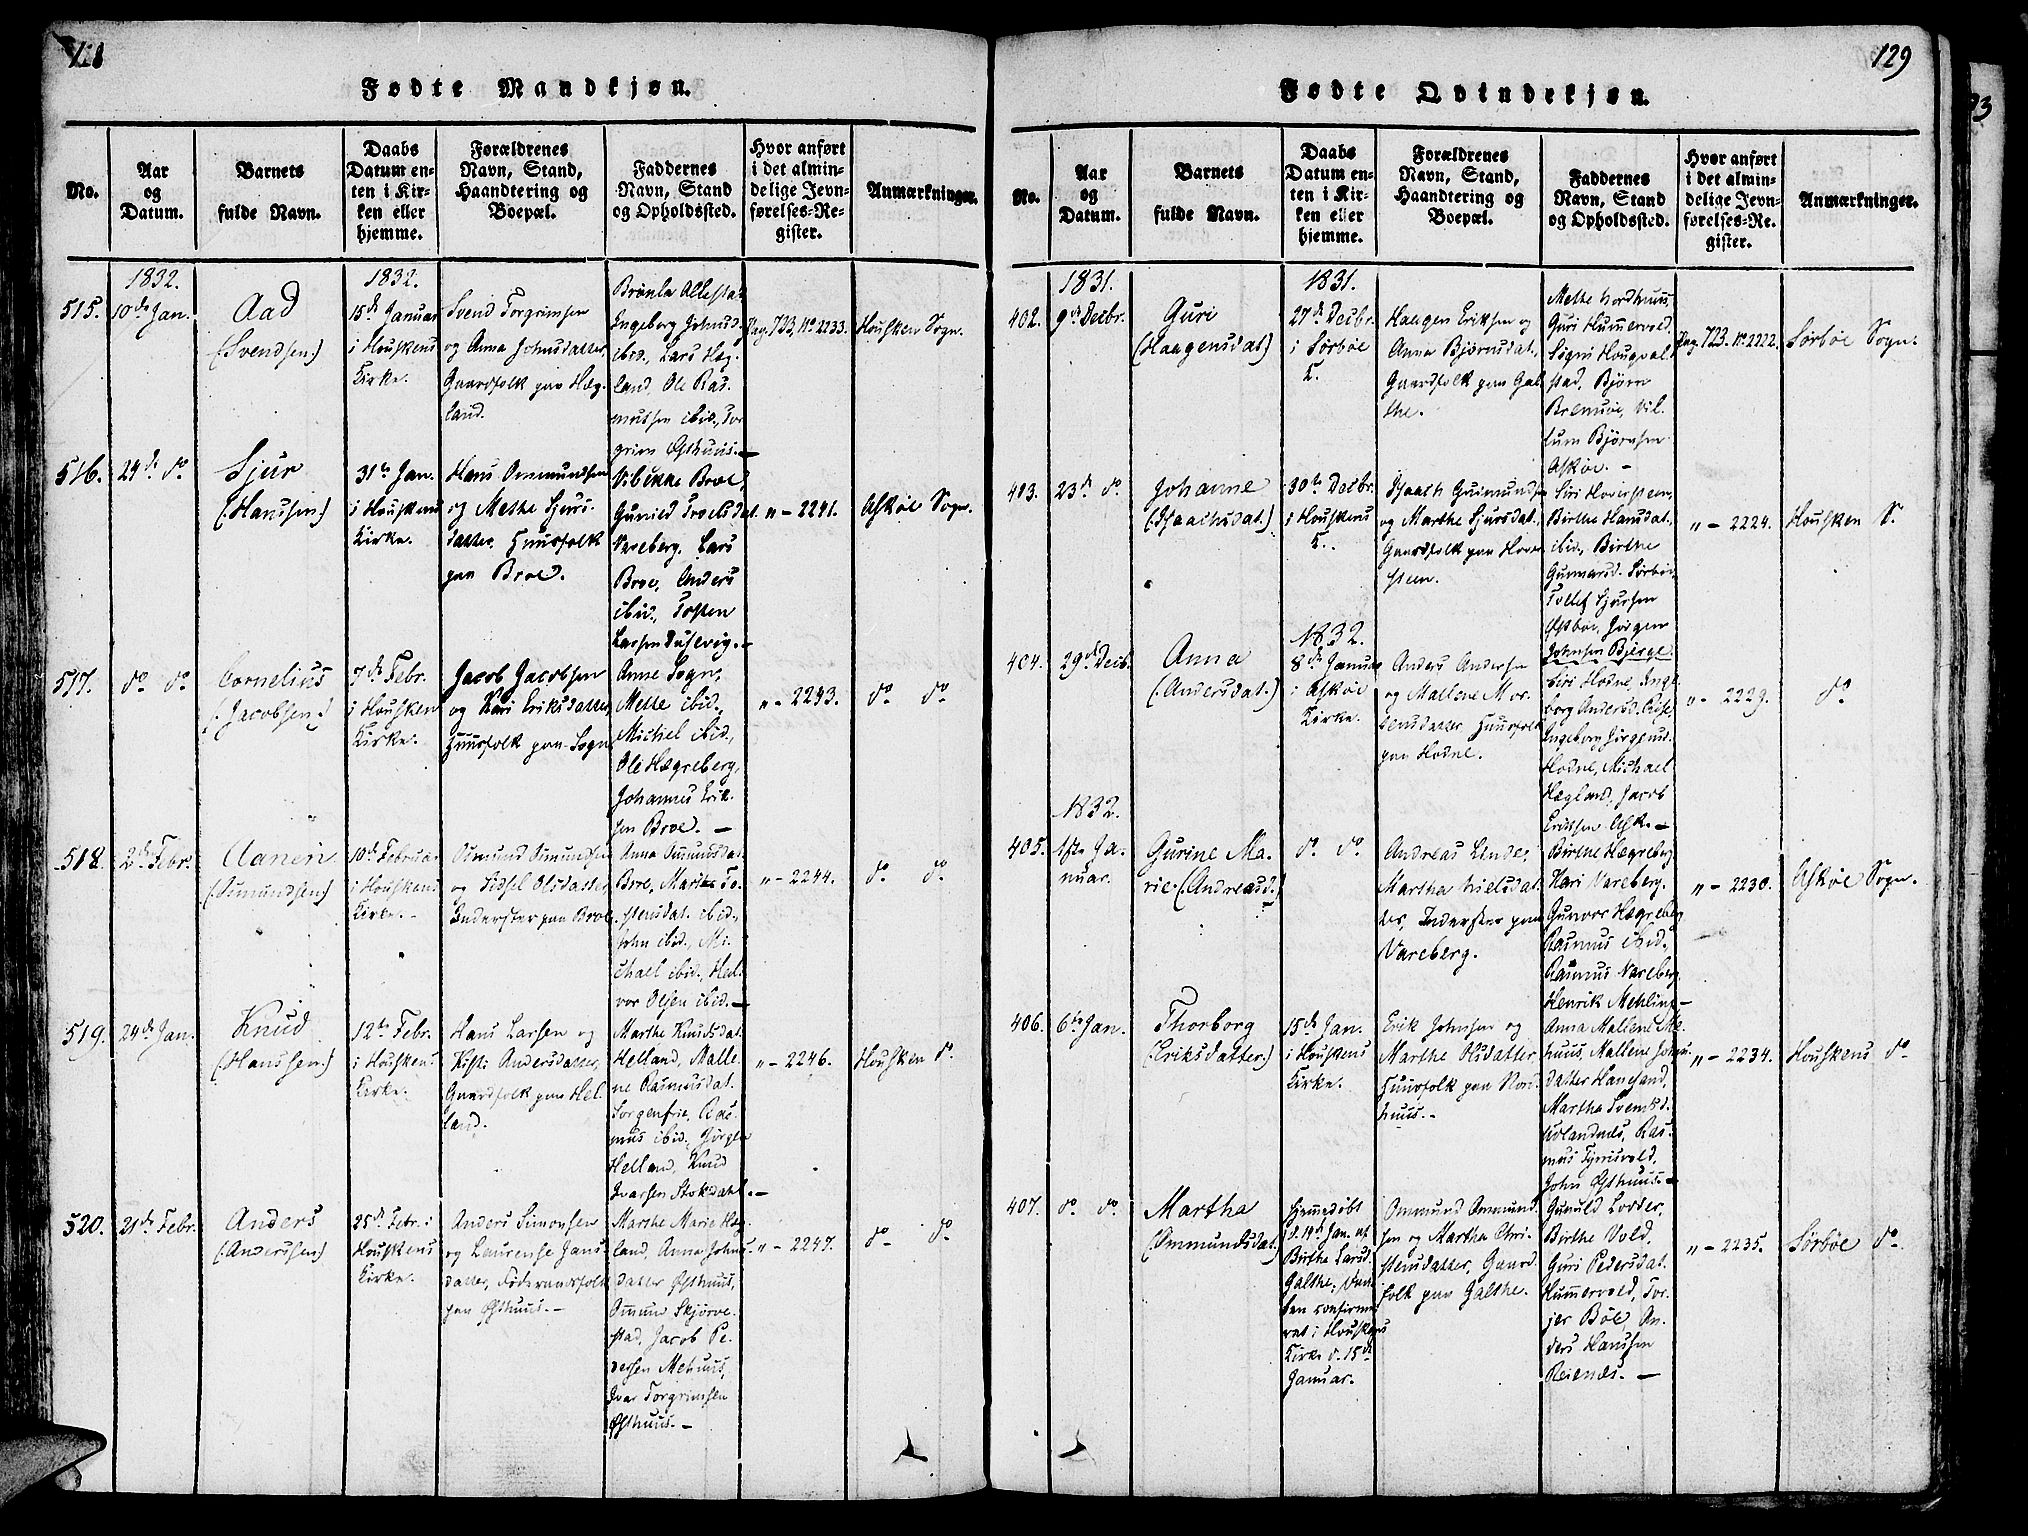 128
Fødte Mandkjøn.
No.
Aar
og
Datum.
Barnets
fulde Navn.
Daabs
Datum en-
ten i Kir-
ken eller
hjemme.
Forældrenes
Navn, Stand,
Haandtering og
Boepæl.
Faddernes
Navn, Stand
og Opholdssted.
Hvor anført
i det almin-
delige Jevn-
førelses-Re-
gister.
Anmærkninger.
1832.
515. 10de Jan.
Aad
(Svendsen)
1832.
15de Januar
i Houskens
Kirke.
Svend Torgrimsen
og Anna Johnsdatter,
Gaardfolk paa Hæg-
land.
Ingeborg Johnsd.
ibid., Lars Hæg-
land, Ole Ras-
mussen ibid., Tor-
grim Østhuus.—
Pag. 723, No 2233.
Housken Sogn.
516. 24de do
Sjur
(Hanssen)
31te Jan.
i Houskens
Kirke.
Hans Ommundsen
og Methe Sjurs-
datter, Huusfolk
paa Broe.
Vibikke Broe,
Gunild Troelsdat.
Vareberg, Lars
Broe, Anders
ibid., Tosten
Larsen
„ – 2241.
Askøe Sogn.
517. do do
Cornelius
(Jacobsen)
7de Febr.
i Housken
Kirke.
Jacob Jacobsen
og Kari Eriksdatter,
Huusfolk paa Sogn.
Anne Sogn,
Mette ibid.,
Michel ibid.,
Ole Hægreberg,
Johannes Erik-
sen Broe. —
„ – 2243.
do do
518. 2de Febr.
Aanen
(Osmundsen)
10de Februar
i Houskens
Kirke.
Osmund Osmundsen
og Sidsel Olsdatter,
Inderster paa Broe
Anna Ommunsdat.
Broe, Marthe To-
stensdat. ibid.,
John ibid., Mi-
chael ibid., Hal-
vor Olsen ibid.—
„ – 2244.
do do
519. 24de Jan.
Knud
(Hanssen)
12te Febr.
i Houskens
Kirke.
Hans Larsen og
Kist: Andersdatter,
Gaardfolk paa Hel-
land.
Marthe Knudsdat.
Helland, Malle-
ne Rasmusdat.
Sorgenfrie, Ras-
mus ibid., Jørgen
Helland, Knud
Ivarsen Stokdahl.—
„ – 2246.
Housken do
520. 21de Febr.
Anders
(Anderssen)
25de Febr. i
Houskens
Kirke.
Anders Simonsen
og Laurense Jans-
datter, Føderaadsfolk
paa Østhuus.—
Marthe Marie Hæg-
land, Anna Johns-
datter Østhuus,
Omun Skjørve-
stad, Jacob Pe-
dersen Mehuus,
Ivar Torgrimsen
Østhuus.—
„ – 2247.
do do
129
Fødte Qvindekjøn.
No.
Aar
og
Datum.
Barnets
fulde Navn.
Daabs
Datum en-
ten i Kir-
ken eller
hjemme.
Forældrenes
Navn, Stand,
Haandtering og
Boepæl.
Faddernes
Navn, Stand
og Opholdssted.
Hvor anført
i det almin-
delige Jevn-
førelses-Re-
gister.
Anmærkninger.
1831.
402. 9de Decbr.
Guri
(Haagensdat)
1831.
27de Decbr.
i Sørbøe
K.
Haagen Eriksen og
Anna Bjørnsdat.,
Gaardfolk paa Gal-
the.
Methe Nordhuus,
Guri Hummervold,
Signi Hougval-
stad, Bjørn
Bremsøe, Vil-
lum Bjørnsen
Askøe. –
Pag. 723. No 2222.
Sørbøe Sogn.
403. 23de do
Johanne
(Isaachsdat.)
30te Decbr.
i Houskens
K.
Isaach Gudmundsen
og Marthe Sjursdat.,
Gaardfolk paa Hove-
steen.
Siri Hovesteen,
Birthe Hansdat.,
ibid., Birthe
Gunnarsd. Sørbøe,
Tollef Sjursen
Østbøe, Jørgen
Johnsen Bjerge.
„ – 2224.
Housken S.
404. 29de Decb.
Anna
(Andersdat.)
1832.
8de Januar
i Askøe
Kirke.
Anders Andersen
og Mallene Mor-
tensdatter, Huusfolk
paa Hodne.
Siri Hodne, Inge-
borg Andersd.
Ingeborg Jørgensd.
Hodne, Michael
Hægland, Jacob
Eriksen Ask.—
„ – 2229.
do
1832.
405. 1ste Ja-
nuar.
Gurine Ma-
rie (Andreasd.)
do do
Andreas Linde,
Martha Nielsdat-
ter, Inderster paa
Vareberg.
Birthe Hægreberg,
Kari Vareberg,
Gunvor Hægreberg,
Rasmus ibid.,
Rasmus Vareberg,
Henrik Mehling—
„ – 2230.
Askøe Sogn.
406. 6te Jan.
Thorborg
(Eriksdatter.)
15de Jan.
i Houskens
Kirke.
Erik Johnsen og
Marthe Olsdatter
Huusfolk paa Nord-
huus.–
Anna Mallene Me-
huus, Mallene Johns-
datter Hanesand,
Martha Svendsd.
Rolandnes, Ras-
mus
John Østhuus—
„ – 2234.
Houskens do
407. do do
Martha
(Ommundsdat.)
Hjemmedøbt
d. 14de Jan. af
Birthe Larsd.
Galthe, Daa-
ben confirme-
ret i Houskens
Kirke d. 15de
Januar.
Ommund Ommund-
sen og Martha Chri-
stensdatter, Gaard-
folk paa Galthe.
Gunuld Lodder,
Birthe Vold,
Guri Pedersdat.
Hummervold, Tor-
jer Bøe, An-
ders Hanssen
Reienes.—
„ – 2235.
Sørbøe do